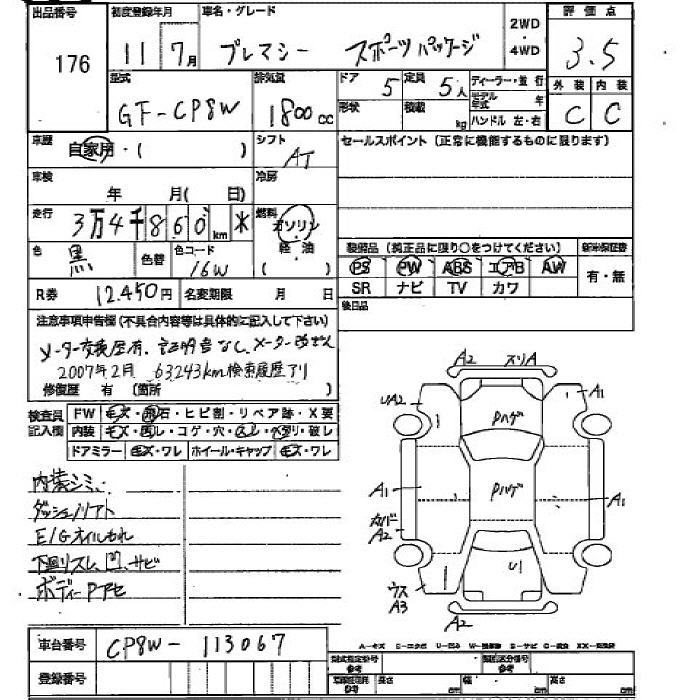 出品番号 176
初度登録年月 11 7月
車名・グレード ブレマシー スポーツパッケージ
2WD・4WD
評価点 3.5
型式 GF-CP8W
排気量 1800cc
ドア 5
定員 5人
ディーラー・並行
モデル年式 年
形状
積載 kg
ハンドル 左・右
外装 C
内装 C
車歴 自家用・( )
シフト AT
セールスポイント(正常に機能するものに限ります)
車検 年 月( 日)
冷房
走行 3万4千860km ※
燃料 ガソリン 軽・油 ( )
色 黒
色替
色コード 16W
装備品(純正品に限り○をつけてください)
PS PW ABS エアB AW
SR ナビ TV カワ
有・無
R券 12.450円
名変期限 月 日
後日品
注意事項申告欄(不具合内容等は具体的に記入して下さい)
メーター交換歴有、証明書なし、メーター改ざん
2007年2月 63243km検索履歴アリ
修復歴 有 (箇所 )
検査員記入欄
FW キズ・飛石・ヒビ割・リペア跡・X要
内装 キズ・凹レ・コゲ・穴・スレ・ヘタリ・破レ
ドアミラー キズ・ワレ ホイール・キャップ キズ・ワレ
内装シミ
ダッシュリフト
E/Gオイルもれ
下廻りスレ、凹、サビ
ボディーPアセ
A2 スリA
UA2
A1
Pハゲ
A1
Pハゲ
A1
カバーA2
U1
ウスA3
A2
車台番号 CP8W-113067
登録番号
型式指定番号 参考
類別区分番号 参考
長さ cm
幅 cm
高さ cm